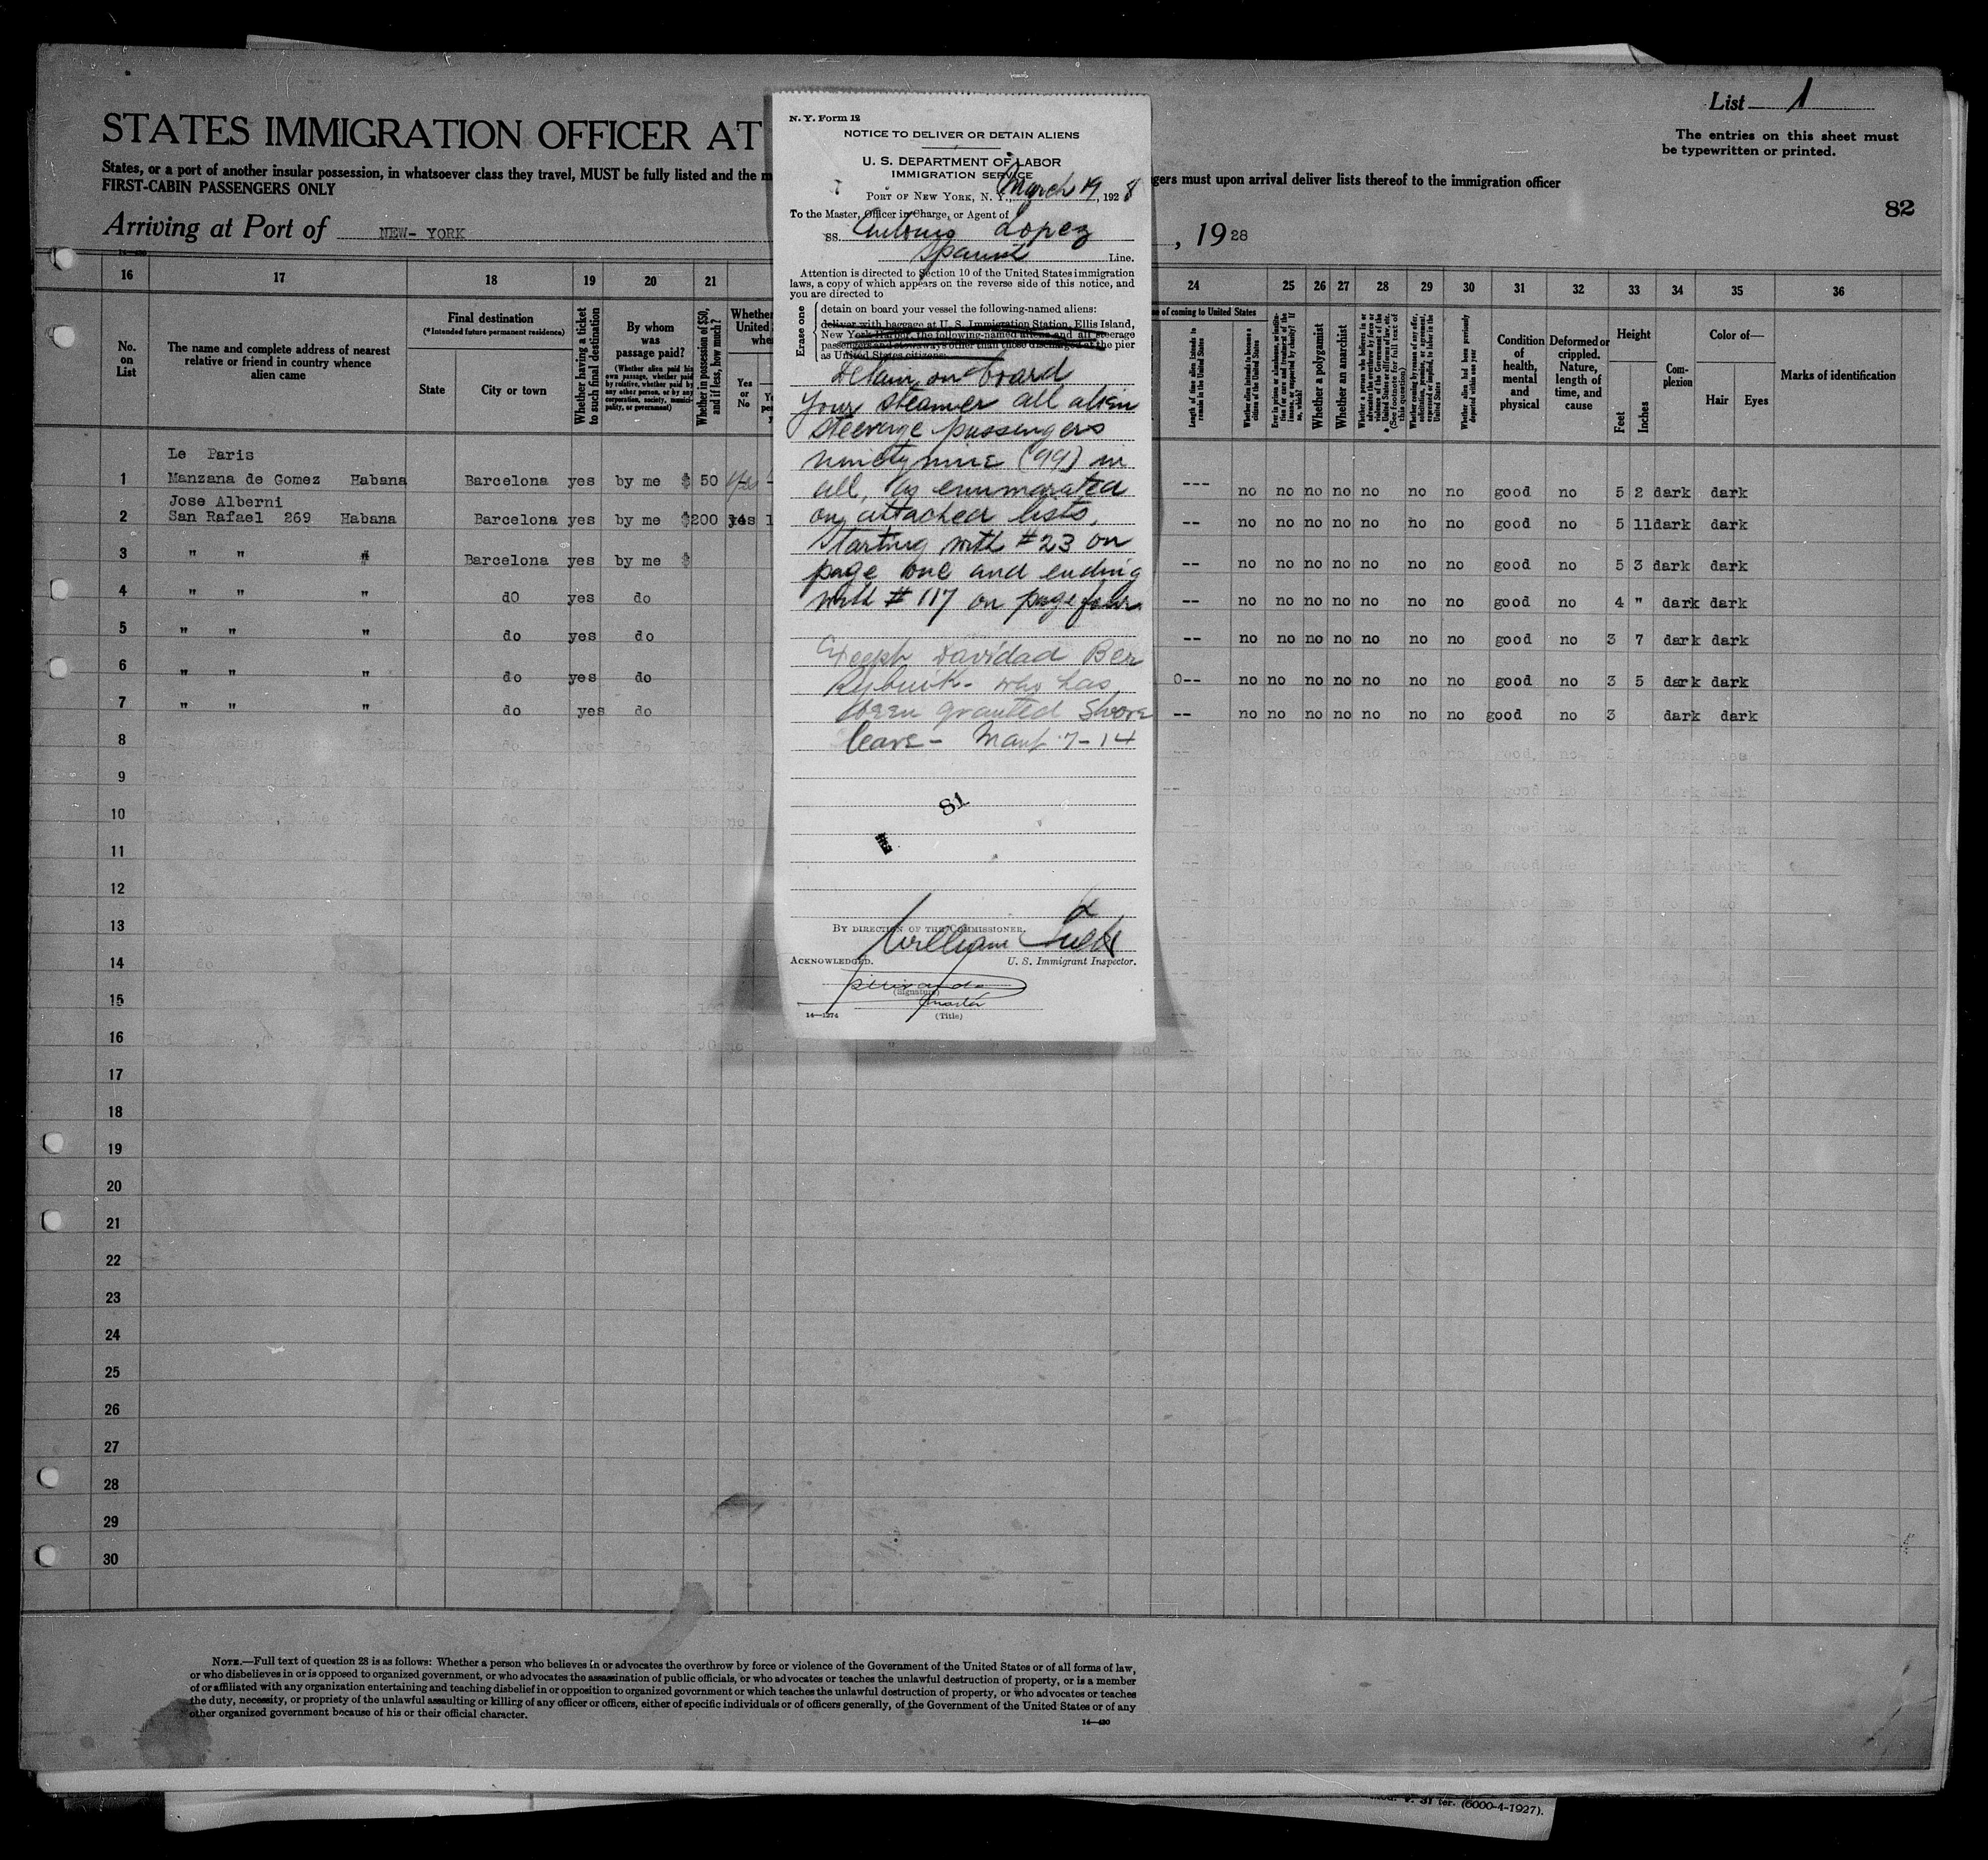 List 1
STATES IMMIGRATION OFFICER AT
The entries on this sheet must
be typewritten or printed.
States, or a port of another insular possession, in whatsoever class they travel, MUST be fully listed and the
gers must upon arrival deliver lists thereof to the immigration officer
FIRST-CABIN PASSENGERS ONLY
82
Arriving at Port of NEW-YORK
, 1928
N. Y. Form 12
NOTICE TO DELIVER OR DETAIN ALIENS
U. S. DEPARTMENT OF LABOR
IMMIGRATION SERVICE
PORT OF NEW YORK, N. Y., March 19, 1928
To the Master, Officer in Charge, or Agent of
SS. Antonio Lopez
Spanish Line.
Attention is directed to Section 10 of the United States immigration
laws, a copy of which appears on the reverse side of this notice, and
you are directed to
Erase one
detain on board your vessel the following-named aliens:
deliver with baggage at U. S. Immigration Station, Ellis Island,
New York Harbor, the following-named aliens and all steerage
passengers and stowaways other than those discharged at the pier
as United States citizens:
Detain on board
your steamer all alien
steerage passengers
ninety nine (99) in
all, as enumerated
on attached lists,
starting with #23 on
page one and ending
with #117 on page four.
Except Davidad Ber
who has
been granted shore
leave - 7-14
81
BY DIRECTION OF THE COMMISSIONER.
William
ACKNOWLEDGED. U. S. Immigrant Inspector.
(Signature)
master
14—1274 (Title)
16 17 18 19 20 21 24 25 26 27 28 29 30 31 32 33 34 35 36
No.
on
List
The name and complete address of nearest
relative or friend in country whence
alien came
Final destination
(*Intended future permanent residence)
State
City or town
Whether having a ticket
to such final destination
By whom
was
passage paid?
(Whether alien paid his
own passage, whether paid
by relative, whether paid by
any other person, or by any
corporation, society, munici-
pality, or government)
Whether in possession of $50,
and if less, how much?
Whether
United
Yes
or
No
e of coming to United States
Length of time alien intends to
remain in the United States
Whether alien intends to become a
citizen of the United States
Whether a polygamist
Whether an anarchist
Whether alien had been previously
deported within one year
Condition
of
health,
mental
and
physical
Deformed or
crippled.
Nature,
length of
time, and
cause
Height
Feet
Inches
Com-
plexion
Color of—
Hair
Eyes
Marks of identification
Le Paris
1 Manzana de Gomez Habana Barcelona yes by me $ 50 --- no no no no no no no good no 5 2 dark dark
Jose Alberni
2 San Rafael 269 Habana Barcelona yes by me $200 yes 1 -- no no no no no no no good no 5 11 dark dark
3 " " " Barcelona yes by me $ -- no no no no no no no good no 5 3 dark dark
4 " " " dO yes do -- no no no no no no no good no 4 " dark dark
5 " " " do yes do -- no no no no no no no good no 3 7 dark dark
6 " " " do yes do 0-- no no no no no no no good no 3 5 dark dark
7 " " " do yes do -- no no no no no no no good no 3 dark dark
8
9
10
11
12
13
14
15
16
17
18
19
20
21
22
23
24
25
26
27
28
29
30
NOTE.—Full text of question 28 is as follows: Whether a person who believes in or advocates the overthrow by force or violence of the Government of the United States or of all forms of law,
or who disbelieves in or is opposed to organized government, or who advocates the assassination of public officials, or who advocates or teaches the unlawful destruction of property, or is a member
of or affiliated with any organization entertaining and teaching disbelief in or opposition to organized government or which teaches the unlawful destruction of property, or who advocates or teaches
the duty, necessity, or propriety of the unlawful assaulting or killing of any officer or officers, either of specific individuals or of officers generally, of the Government of the United States or of any
other organized government because of his or their official character.
14—420
31 ter. (6000-4-1927).